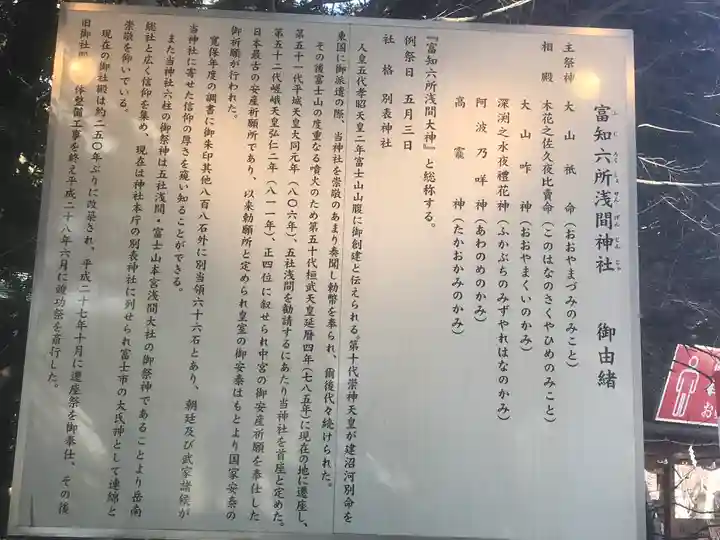 富知六所浅間神社　御由緒
ふじろくしょせんげんじんじゃ
主祭神　大山祇命（おおやまづみのみこと）
相殿　木花之佐久夜比賣命（このはなのさくやひめのみこと）
大山咋神（おおやまくいのかみ）
深渕之水夜禮花神（ふかぶちのみずやれはなのかみ）
阿波乃咩神（あわのめのかみ）
高龗神（たかおかみのかみ）
『富知六所浅間大神』と総称する。
例祭日　五月三日
社格　別表神社
人皇五代孝昭天皇二年富士山山腹に御創建と伝えられる。第十代崇神天皇が建沼河別命を
東国に御派遣の際、当神社を崇敬のあまり奏聞し勅幣を奉られ、爾後代々続けられた。
その後富士山の度重なる噴火のため第五十代桓武天皇延暦四年（七八五年）に現在の地に遷座し、
第五十一代平城天皇大同元年（八〇六年）、五社浅間を勧請するにあたり当神社を首座と定めた。
第五十二代嵯峨天皇弘仁二年（八一一年）、正四位に叙せられ中宮の御安産祈願を奉仕した
日本最古の安産祈願所であり、以来勅願所と定められ皇室の御安泰はもとより国家安泰の
御祈願が行われた。
寛保年度の調書に御朱印其他八百八石外に別当領六十六石とあり、朝廷及び武家諸候が
当神社に寄せた信仰の厚さを窺い知ることができる。
また当神社六柱の御祭神は五社浅間・富士山本宮浅間大社の御祭神であることより岳南
総社と広く信仰を集め、現在は神社本庁の別表神社に列せられ富士市の大氏神として連綿と
崇敬を仰いでいる。
現在の御社殿は約二五〇年ぶりに改築され、平成二十七年十月に遷座祭を御奉仕、その後
旧御社殿 体整備工事を終え平成二十八年六月に竣功祭を斎行した。
お